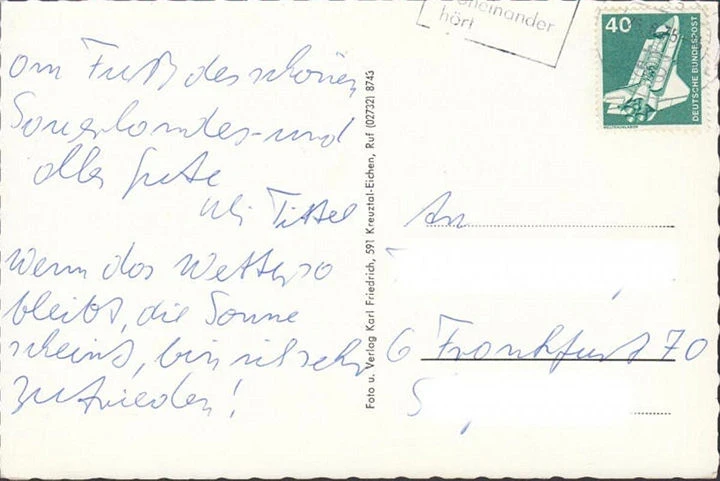 am Fuß des schönen
Sauerlandes - und
alles Gute
Uli Tittel
Wenn das Wetter so
bleibt, die Sonne
scheint, bin ich sehr
zufrieden!
Foto u. Verlag Karl Friedrich, 591 Kreuztal-Eichen, Ruf (02732) 8743
einander
hört
40
DEUTSCHE BUNDESPOST
WELTRAUMLABOR
An
6 Frankfurt 70
S